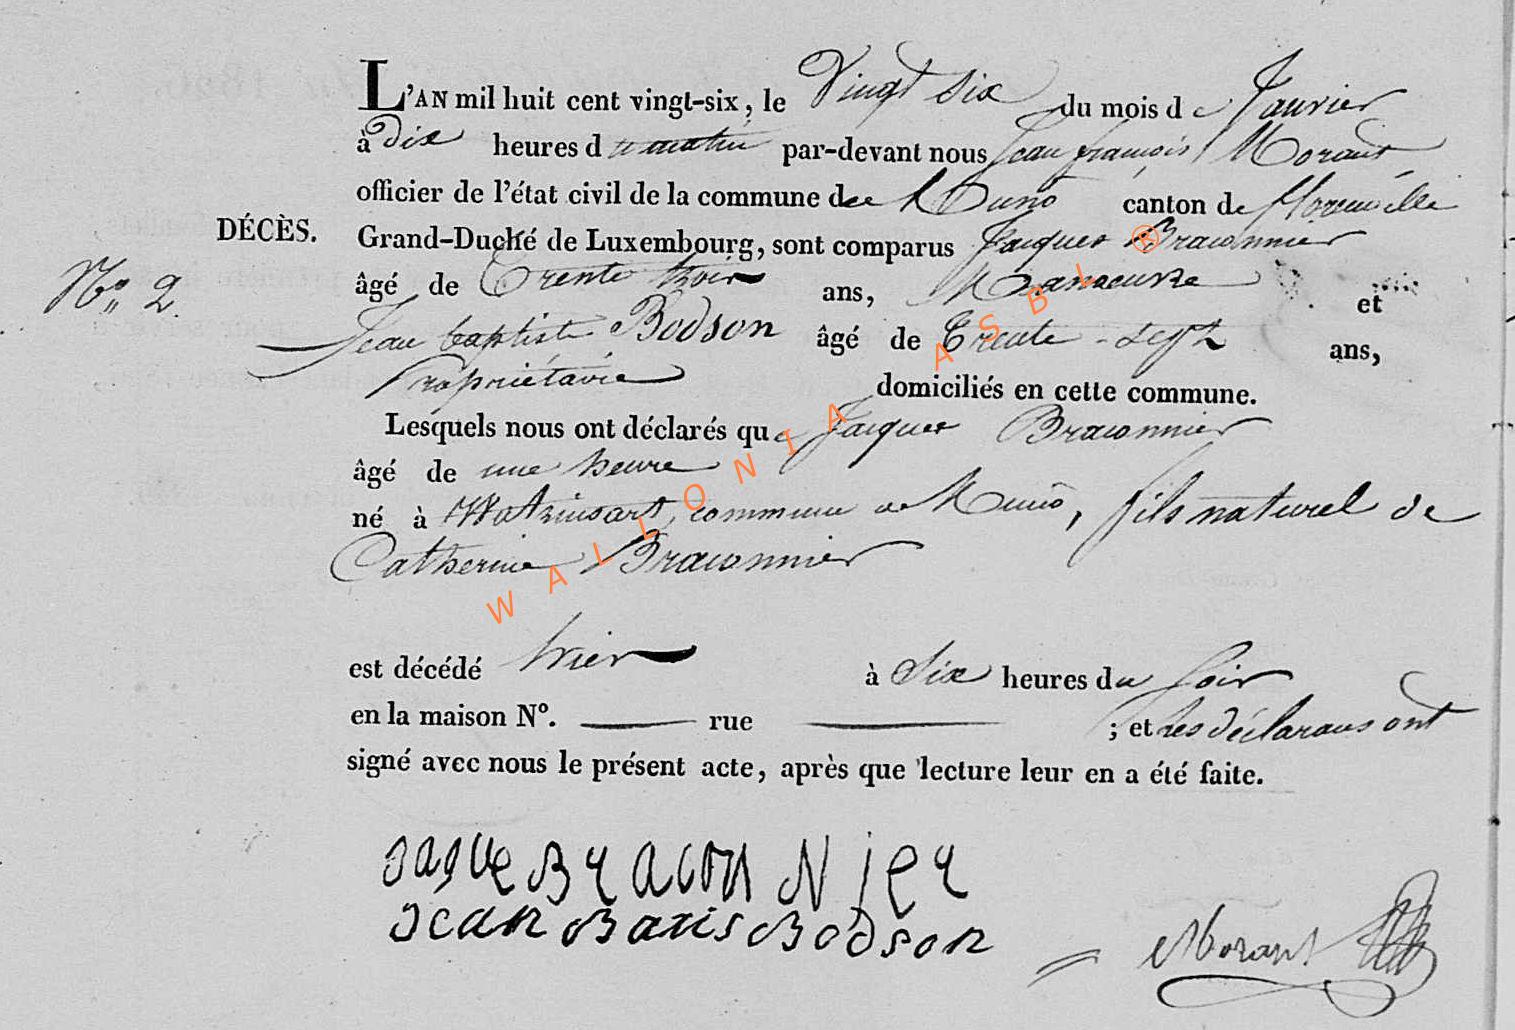 L'AN mil huit cent vingt-six, le Vingt Six du mois de Janvier
à dix heures du matin par-devant nous Jean françois Morant
officier de l'état civil de la commune de Muno canton de florenville
DÉCÈS. Grand-Duché de Luxembourg, sont comparus Jacques Braconnier
No 2. âgé de Trente trois ans, Manoeuvre et
Jean baptiste Bodson âgé de Trente-sept ans,
Propriétaire domiciliés en cette commune.
Lesquels nous ont déclarés que Jacques Braconnier
âgé de une heure
né à Watrinsart, commune de Muno, fils naturel de
Catherine Braconnier
est décédé hier à Six heures du soir
en la maison N°. rue ; et les déclarans ont
signé avec nous le présent acte, après que lecture leur en a été faite.
Jaque Braconnier
Jean Batis Bodson
Morant
WALLONIA ASBL ®